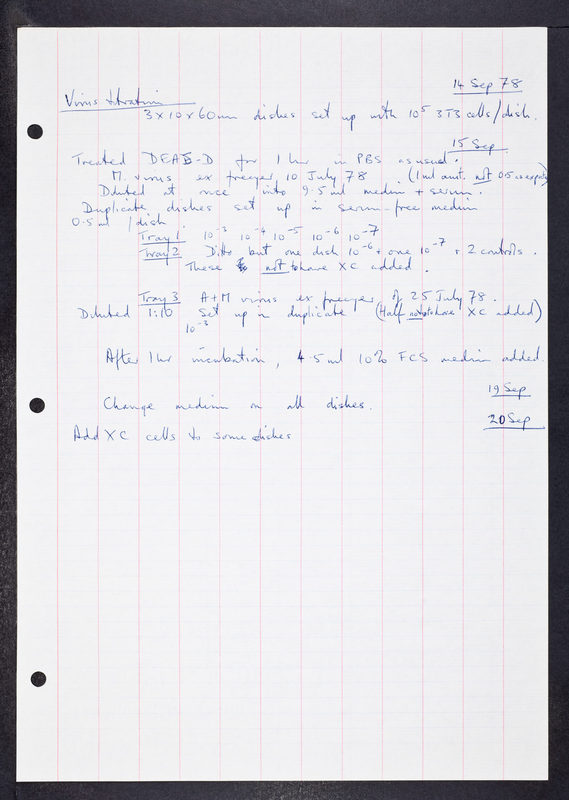 14 Sep 78
Virus titration
3 x 10 x 60mm dishes set up with 10⁵ 3T3 cells/dish.
15 Sep
Treated DEAE-D for 1 hr in PBS as usual.
M. virus ex freezer 10 July 78 (1 ml amt. not 0.5 as expected)
Diluted at once into 9.5 ml medium + serum.
Duplicate dishes set up in serum-free medium
0.5 ml / dish.
Tray 1 10⁻³ 10⁻⁴ 10⁻⁵ 10⁻⁶ 10⁻⁷
Tray 2 Ditto but one dish 10⁻⁶ + one 10⁻⁷ + 2 controls.
These not to have XC added.
Tray 3 A+M virus ex freezer of 25 July 78.
Diluted 1:10 Set up in duplicate (Half not to have XC added)
10⁻³
After 1 hr incubation, 4.5 ml 10% FCS medium added.
19 Sep
Change medium on all dishes.
20 Sep
Add XC cells to some dishes